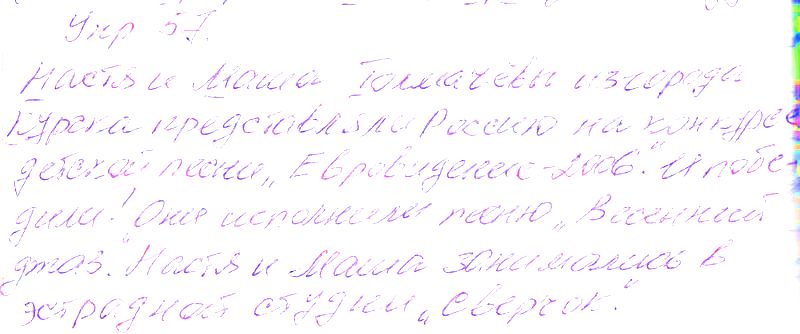 Упр 57.
Настя и Маша Толмачёвы из города
Курска представляли Россию на конкурсе
детской песни „Евровидение-2006". И побе-
дили! Они исполнили песню „Весенний
джаз." Настя и Маша занимались в
эстрадной студии „Сверчок."